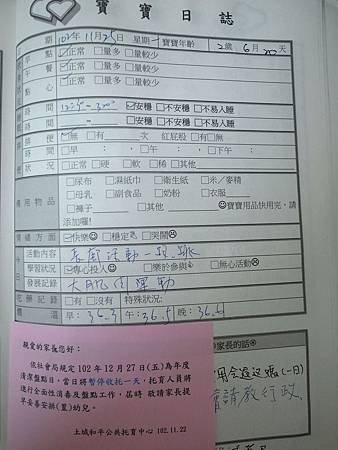 寶寶日誌
期 102年11月25日 星期一 寶寶年齡 2歲 6月 20天
早點 ☑正常 □量多 □量較少
午餐 ☑正常 □量多 □量較少
點心 ☑正常 □量多 □量較少
時間 12:50~3:00 ☑安穩 □不安穩 □不易入睡
時間 ~ □安穩 □不安穩 □不易入睡
便 ☑無 □有 次 紅屁股 □有□無
時間 □早 : ,□午 : ,□下午 :
狀況 □正常 □硬 □軟 □稀 □其他
備用物品 □尿布 □濕紙巾 □衛生紙 □米/麥精
□母乳 □副食品 □奶粉 □衣服
□褲子 □其他 ☺寶寶用品快用完,請
添加囉!
情緒方面 ☑快樂☺ □穩定 □哭鬧
活動內容
學習狀況 ☑專心投入 □樂於參與 □無心活動
發展記錄 大肌肉運動
吃藥記錄 □有 □沒有 特殊狀況:
體溫 早:36.3 午:36.5 晚:36.6
親愛的家長您好:
依社會局規定 102 年 12 月 27 日(五)為年度
清潔盤點日,當日將暫停收托一天,托育人員將
進行全面性消毒及盤點工作,屆時 敬請家長提
早妥善安排(置)幼兒。
土城和平公共托育中心 102.11.22
家長的話
(一日)
請教行政.